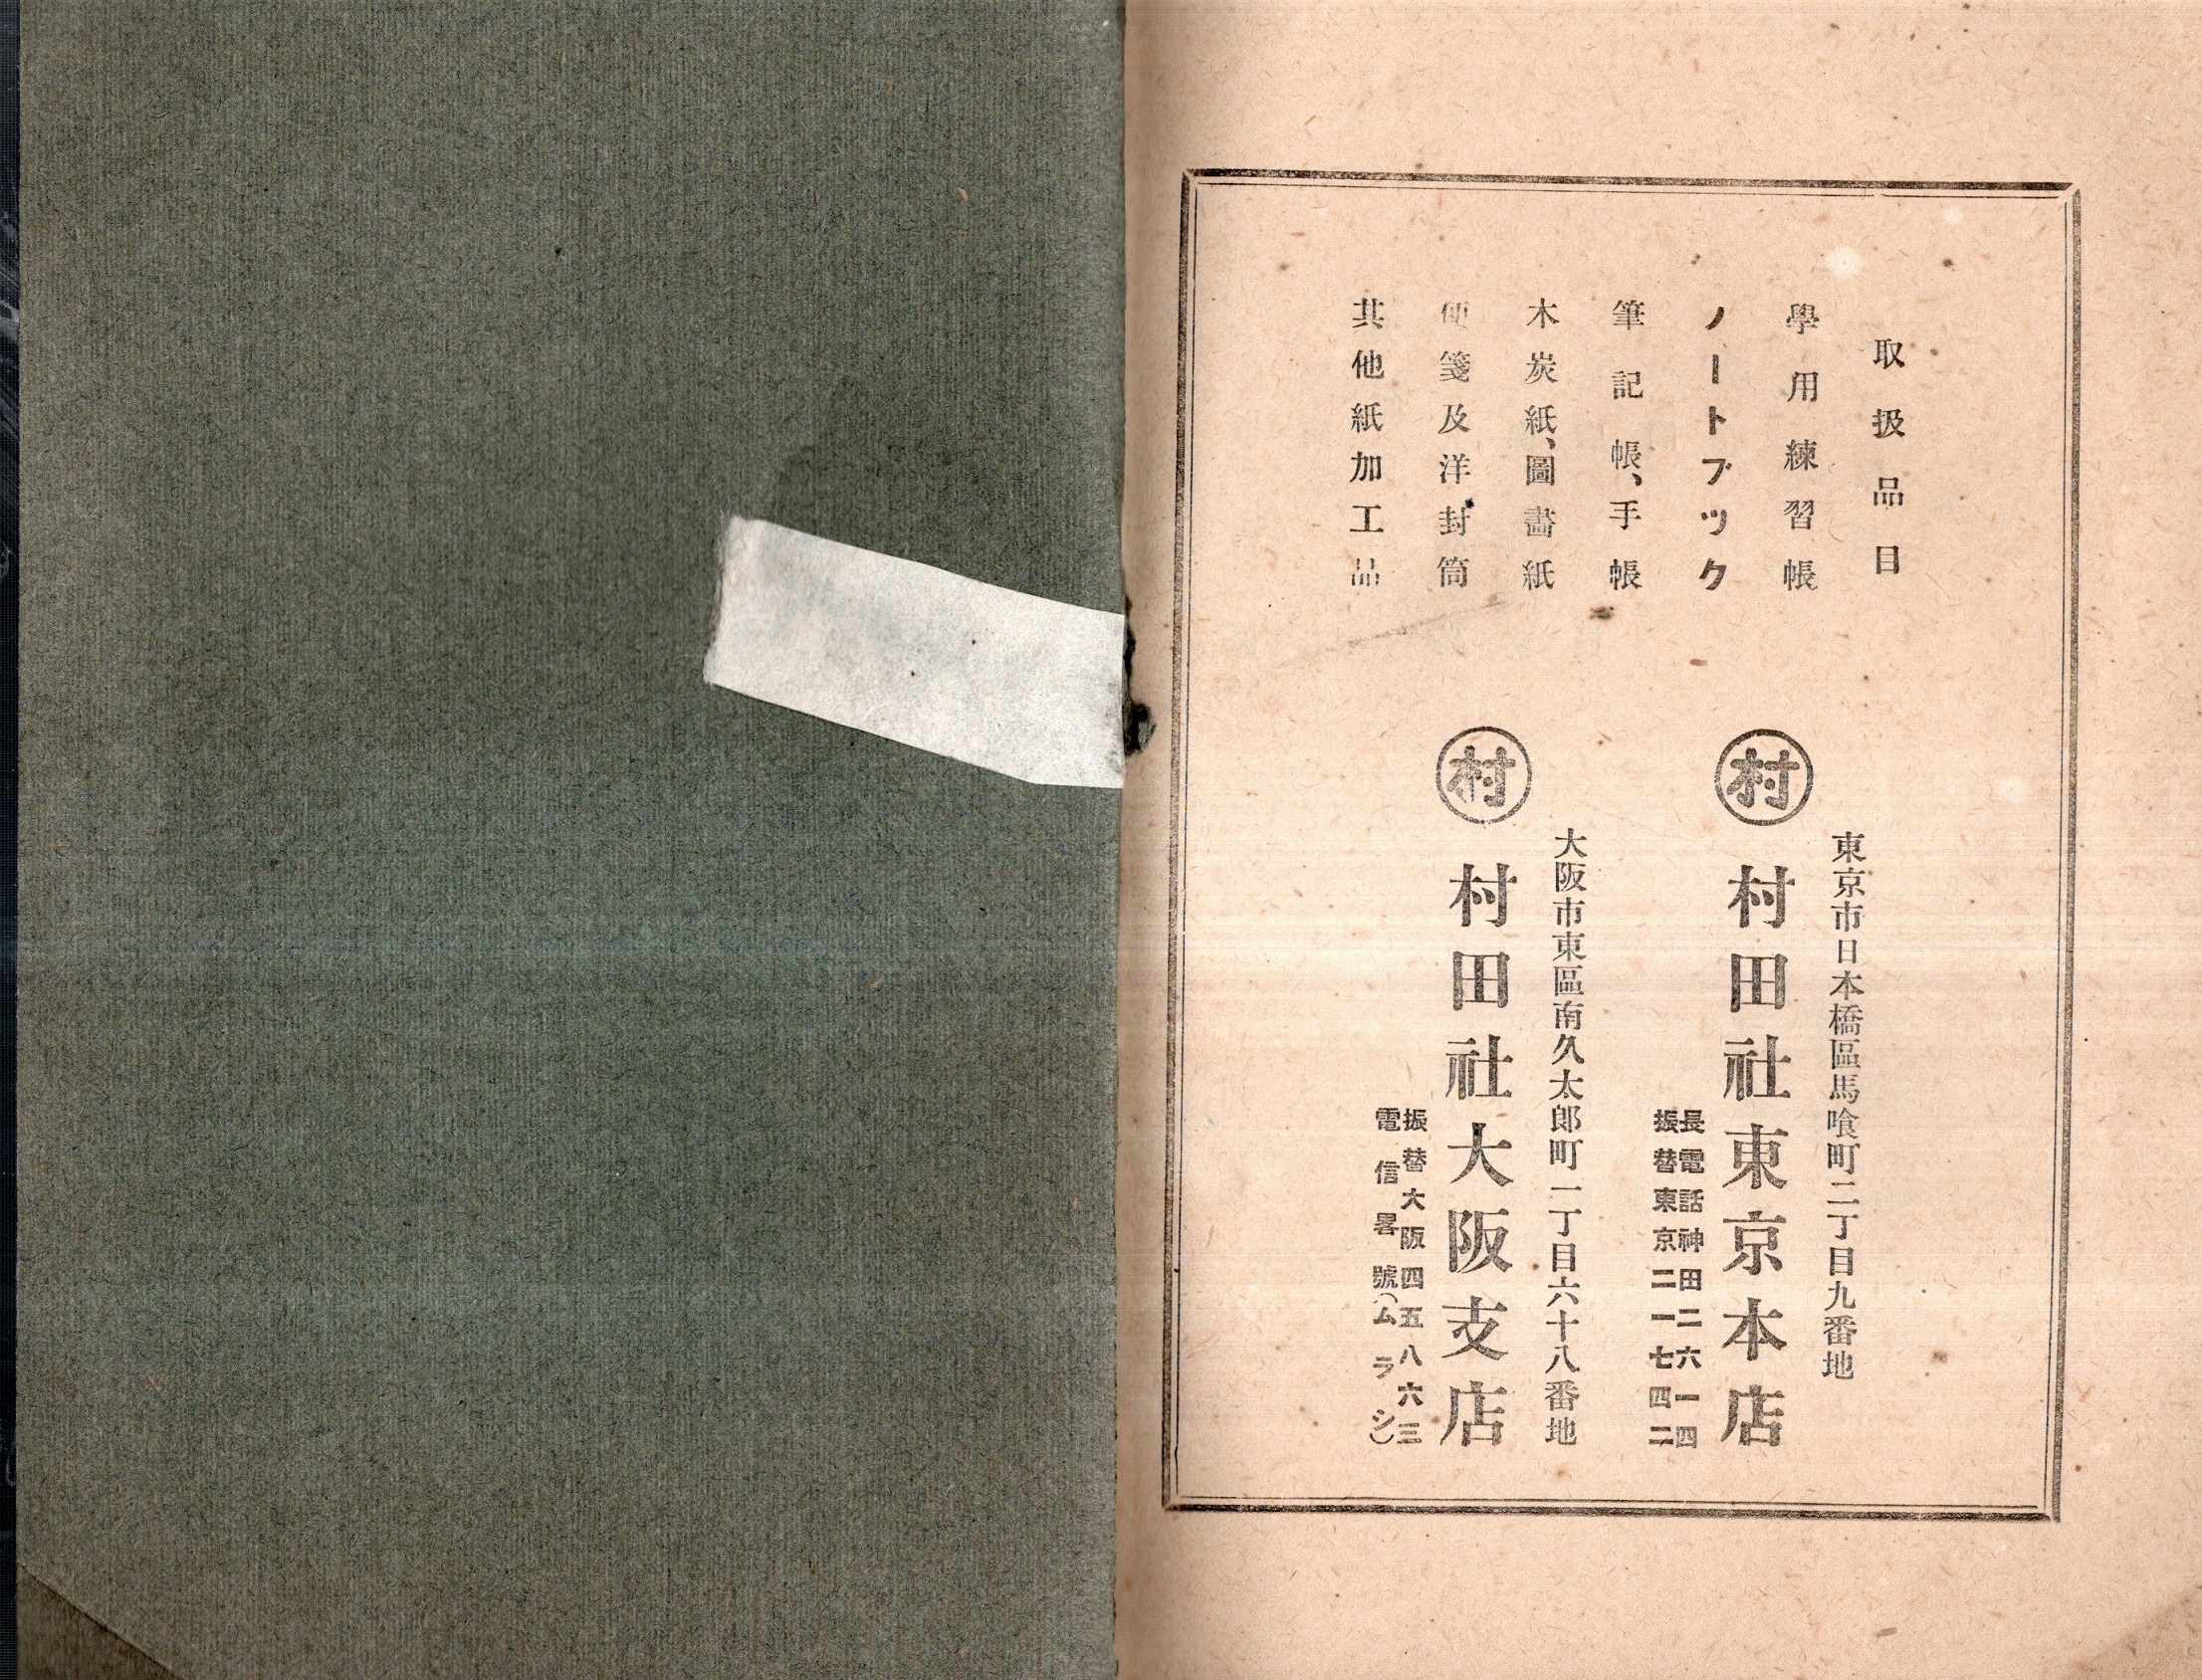 取扱品目
學用練習帳
ノートブック
筆記帳、手帳
木炭紙、圖畵紙
便箋及洋封筒
其他紙加工品
東京市日本橋區馬喰町二丁目九番地
村
村田社東京本店
長電話神田二六一四
振替東京二一七四二
大阪市東區南久太郎町一丁目六十八番地
村
村田社大阪支店
振替大阪四五八六三
電信畧號(ムラシ)